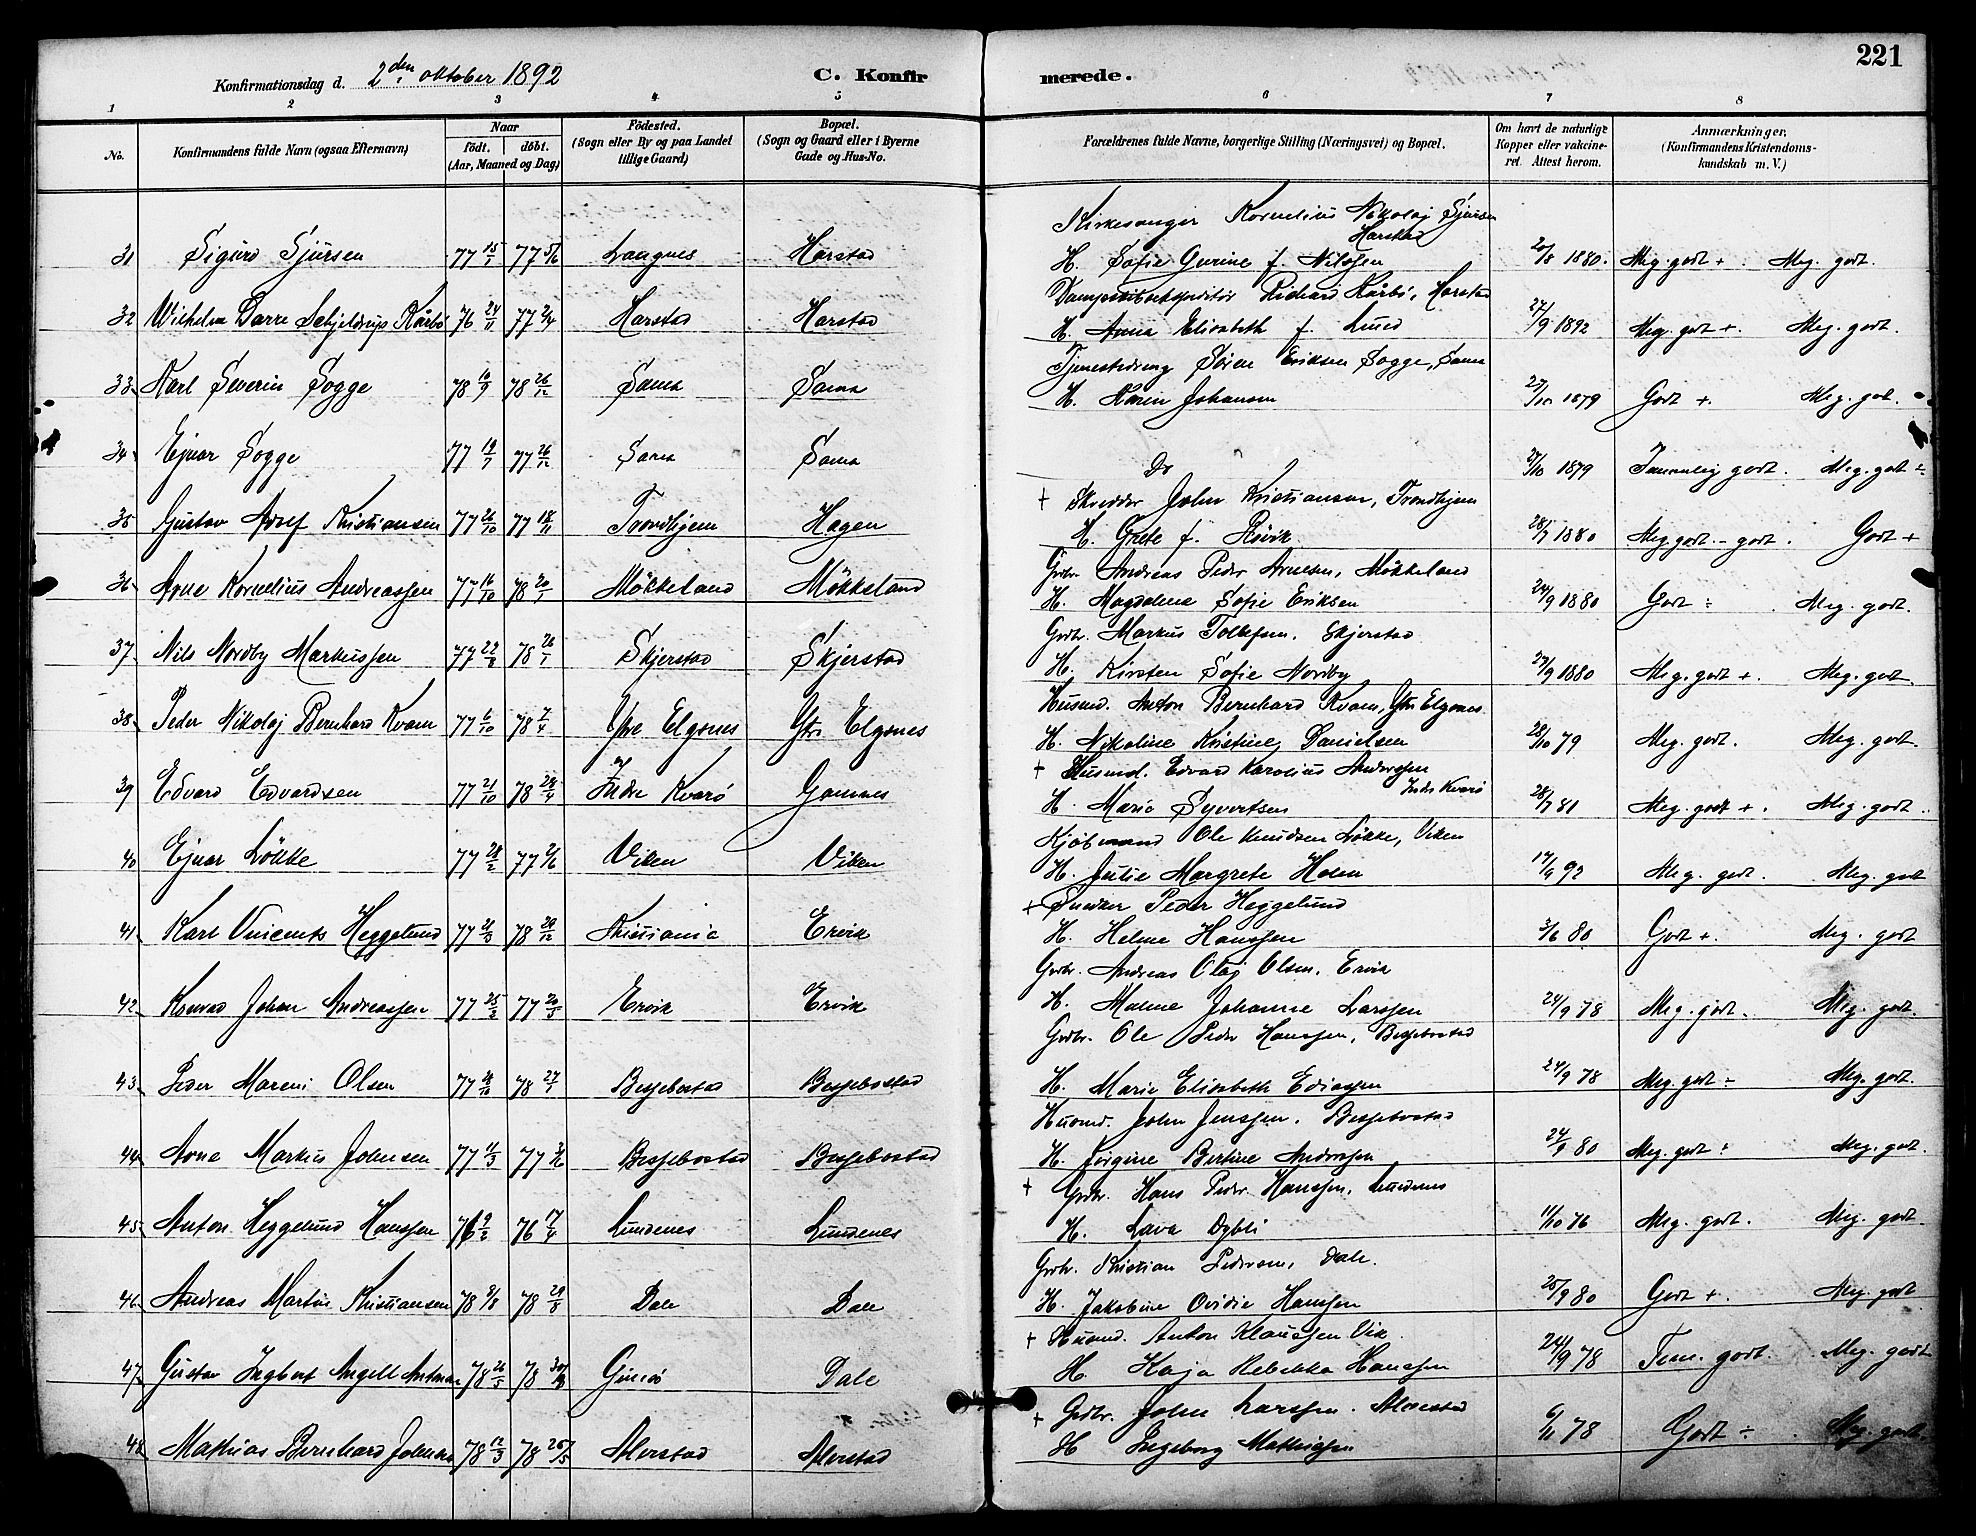 221
Konfirmationsdag d. 2den oktober 1892
C. Konfirmerede.
1 2 3 4 5 6 7 8
No.
Konfirmandens fulde Navn (ogsaa Efternavn)
Naar
födt. döbt.
(Aar, Maaned og Dag)
Födested.
(Sogn eller By og paa Landet
tillige Gaard)
Bopæl.
(Sogn og Gaard eller i Byerne
Gade og Hus-No.
Forældrenes fulde Navne, borgerlige Stilling (Næringsvei) og Bopæl.
Om havt de naturlige
Kopper eller vakcine-
ret. Attest herom.
Anmærkninger.
(Konfirmandens Kristendoms-
kundskab m. V.)
Kirkesanger Kornelius Nikolaj Sjursen
Harstad
31 Sigurd Sjursen 77 15/1 77 5/6 Langnes Harstad H. Sofie Gurine f. Nilssen 20/8 1880. Meg. godt +. Meg. godt.
Richard Kårbö, Harstad
32 Wilhelm Darre Schjeldrup Kårbö 76 24/11 77 2/4 Harstad Harstad H. Anna Elisabeth f. Lund 27/9 1892 Meg. godt +. Meg. godt.
Tjenestedreng Sören Eriksen Sogge, Sama
33 Karl Severin Sogge 78 10/9 78 26/12 Sama Sama H. Karen Johansen 27/10 1879 Godt +. Meg. godt.
34 Ejnar Sogge 77 19/7 77 26/12 Sama Sama Do 27/10 1879 Temmelig godt. Meg. godt ÷
+ Skredder John Kristiansen, Trondhjem
35 Gustav Adolf Kristiansen 77 26/10 77 18/11 Trondhjem Hagen H. Grete f. Rövik 28/7 1880 Meg. godt - godt. Godt +
Grdbr. Andreas Peder Arnesen, Mökkeland
36 Arne Kornelius Andreassen 77 16/10 78 20/1 Mökkeland Mökkeland H. Magdalena Sofie Eriksen 24/9 1880 Godt ÷ Meg. godt.
Grdbr. Markus Tollefsen, Skjerstad
37 Nils Nordby Markussen 77 22/8 78 26/1 Skjerstad Skjerstad H. Kirsten Sofie Nordby 27/9 1880 Meg. godt +. Meg. godt.
Husmd. Anton Bernhard Kvam, Ytre Elgsnes
38 Peder Nikolaj Bernhard Kvam 77 6/10 78 7/4 Ytre Elgsnes Ytre Elgsnes H. Nikoline Kristine Danielsen 28/10 79 Meg. godt. Meg. godt.
+ Husmd. Edvard Karolius Andersen
Indre Kvarö
39 Edvard Edvardsen 77 21/10 78 28/4 Indre Kvarö Gamnes H. Marie Syvertsen 28/7 81 Meg. godt +. Meg. godt.
Kjöbmand Ole Knudsen Lökke, Viken
40 Ejnar Lökke 77 28/2 77 2/6 Viken Viken H. Julie Margrete Holm 17/9 92 Meg. godt. Meg. godt
+ Snedker Peder Heggelund
41 Karl Vincents Heggelund 77 21/3 78 29/12 Kristiania Ervik H. Helene Hanssen 3/6 80 Godt +. Meg. godt
Grdbr. Andreas Olaj Olsen, Ervik
42 Konrad Johan Andreassen 77 25/2 77 20/5 Ervik Ervik H. Malene Johanne Larssen 24/9 78 Meg. godt. Meg. godt.
Grdbr. Ole Peder Hanssen, Bessebostad
43 Peder Mareni Olsen 77 28/10 78 27/1 Bessebostad Bessebostad H. Marie Elisabeth Ediassen 24/9 78 Meg. godt ÷ Meg. godt.
Husmd. John Jenssen, Bessebostad
44 Arne Markus Johnsen 77 11/3 77 3/6 Bessebostad Bessebostad H. Jörgine Bertine Andersen 24/9 80 Meg. godt + Meg. godt.
+ Grdbr. Hans Peder Hanssen, Lundenes
45 Anton Heggelund Hanssen 76 9/2 76 17/4 Lundenes Lundenes H. Lava Dybli 11/10 76 Meg. godt. Meg. godt
Grdbr. Kristian Pedersen, Dale.
46 Andreas Martin Kristiansen 78 3/8 78 29/8 Dale Dale H. Jakobine Ovidie Hanssen 25/9 80 Godt +. Meg. godt
+ Husmd. Anton Klaussen Vik
47 Gustav Ingbert Angell Antonsen 78 26/5 78 Gimsö Dale H Kaja Rebekka Hanssen 24/9 78 Tem. godt. Meg. godt
+ Grdbr. John Larssen. Alvestad
48 Mathias Bernhard Johnsen 78 12/3 78 26/5 Alvestad Alvestad H Ingeborg Mathissen 6/11 78 Godt ÷. Meg. godt